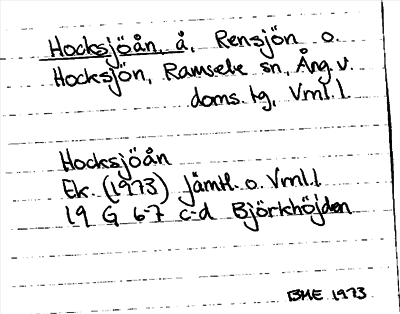 Hocksjöån, å, Rensjön o.
Hocksjön, Ramsele sn, Ång. v.
doms. tg, Vrnl. l.
Hocksjöån
Ek. (1973) Jämtl. o. Vrnl. l
19 G 6-7 c-d Björkhöjden
BME 1973